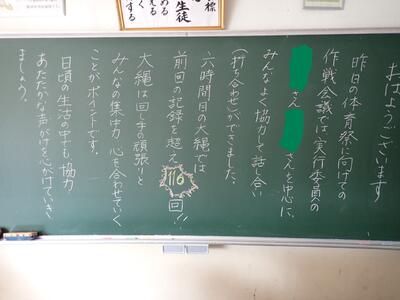 標
生徒
める
える
く
する
おはようございます
昨日の体育祭に向けての
作戦会議では、実行委員の
さん さんを中心に、
みんなよく協力して話し合い
(打ち合わせ)ができました。
六時間目の大縄では
前回の記録を超え 116 回!!
大縄は回し手の頑張りと
みんなの集中力、心を合わせていく
ことがポイントです。
日頃の生活の中でも協力
あたたかな声がけを心がけていき
ましょう。